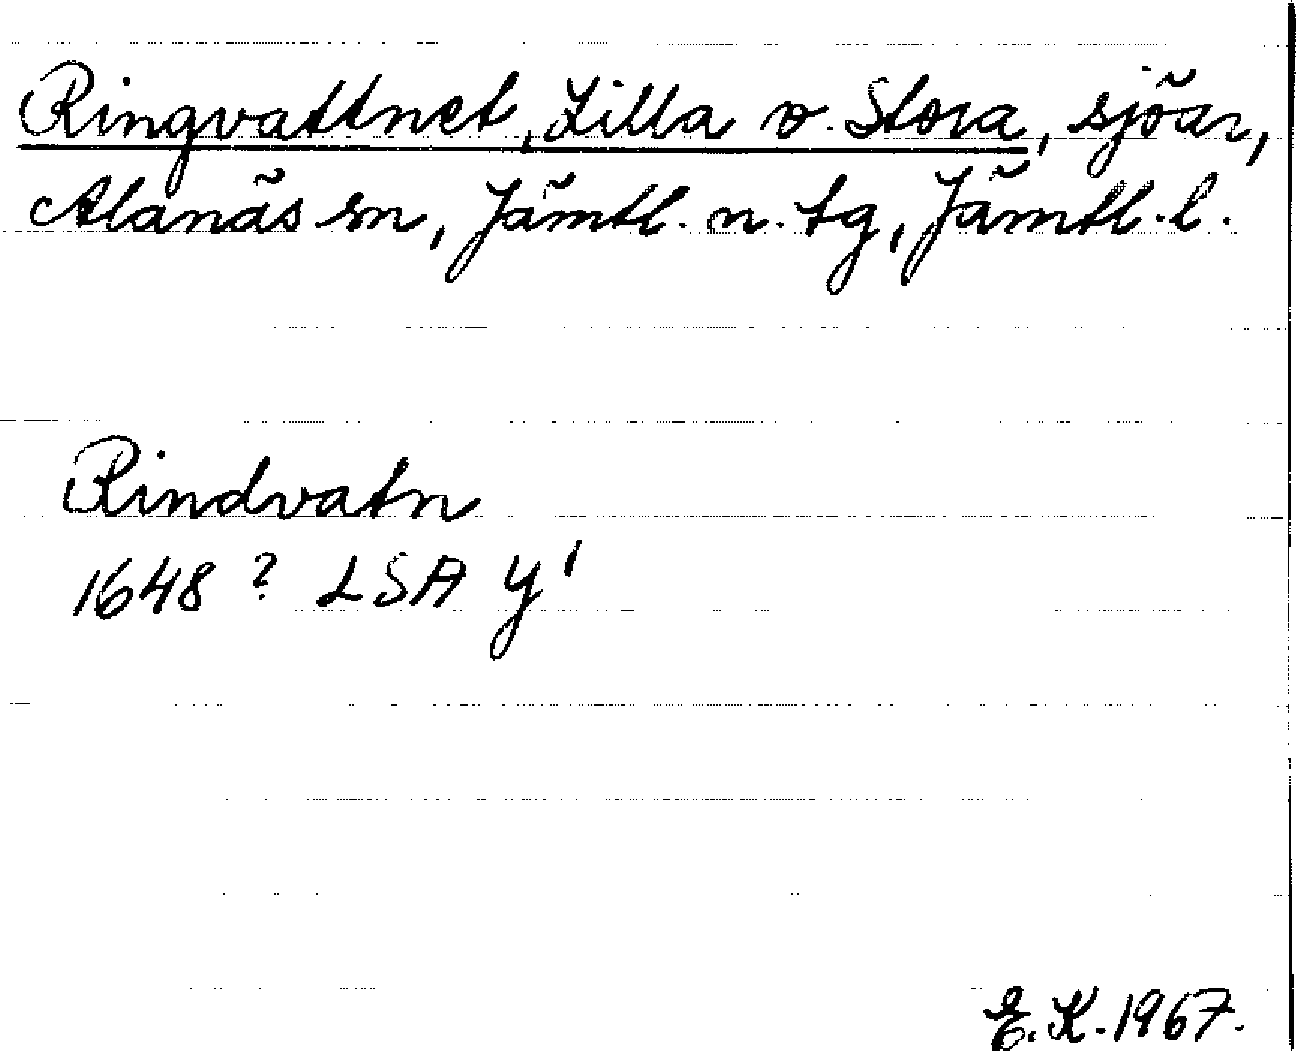 Ringvattnet, Lilla o. Stora, sjöar,
Alanäs sn, Jämtl. n. tg, Jämtl. l.
Rindvatn
1648 ? LSA Y¹
E. K. 1967.